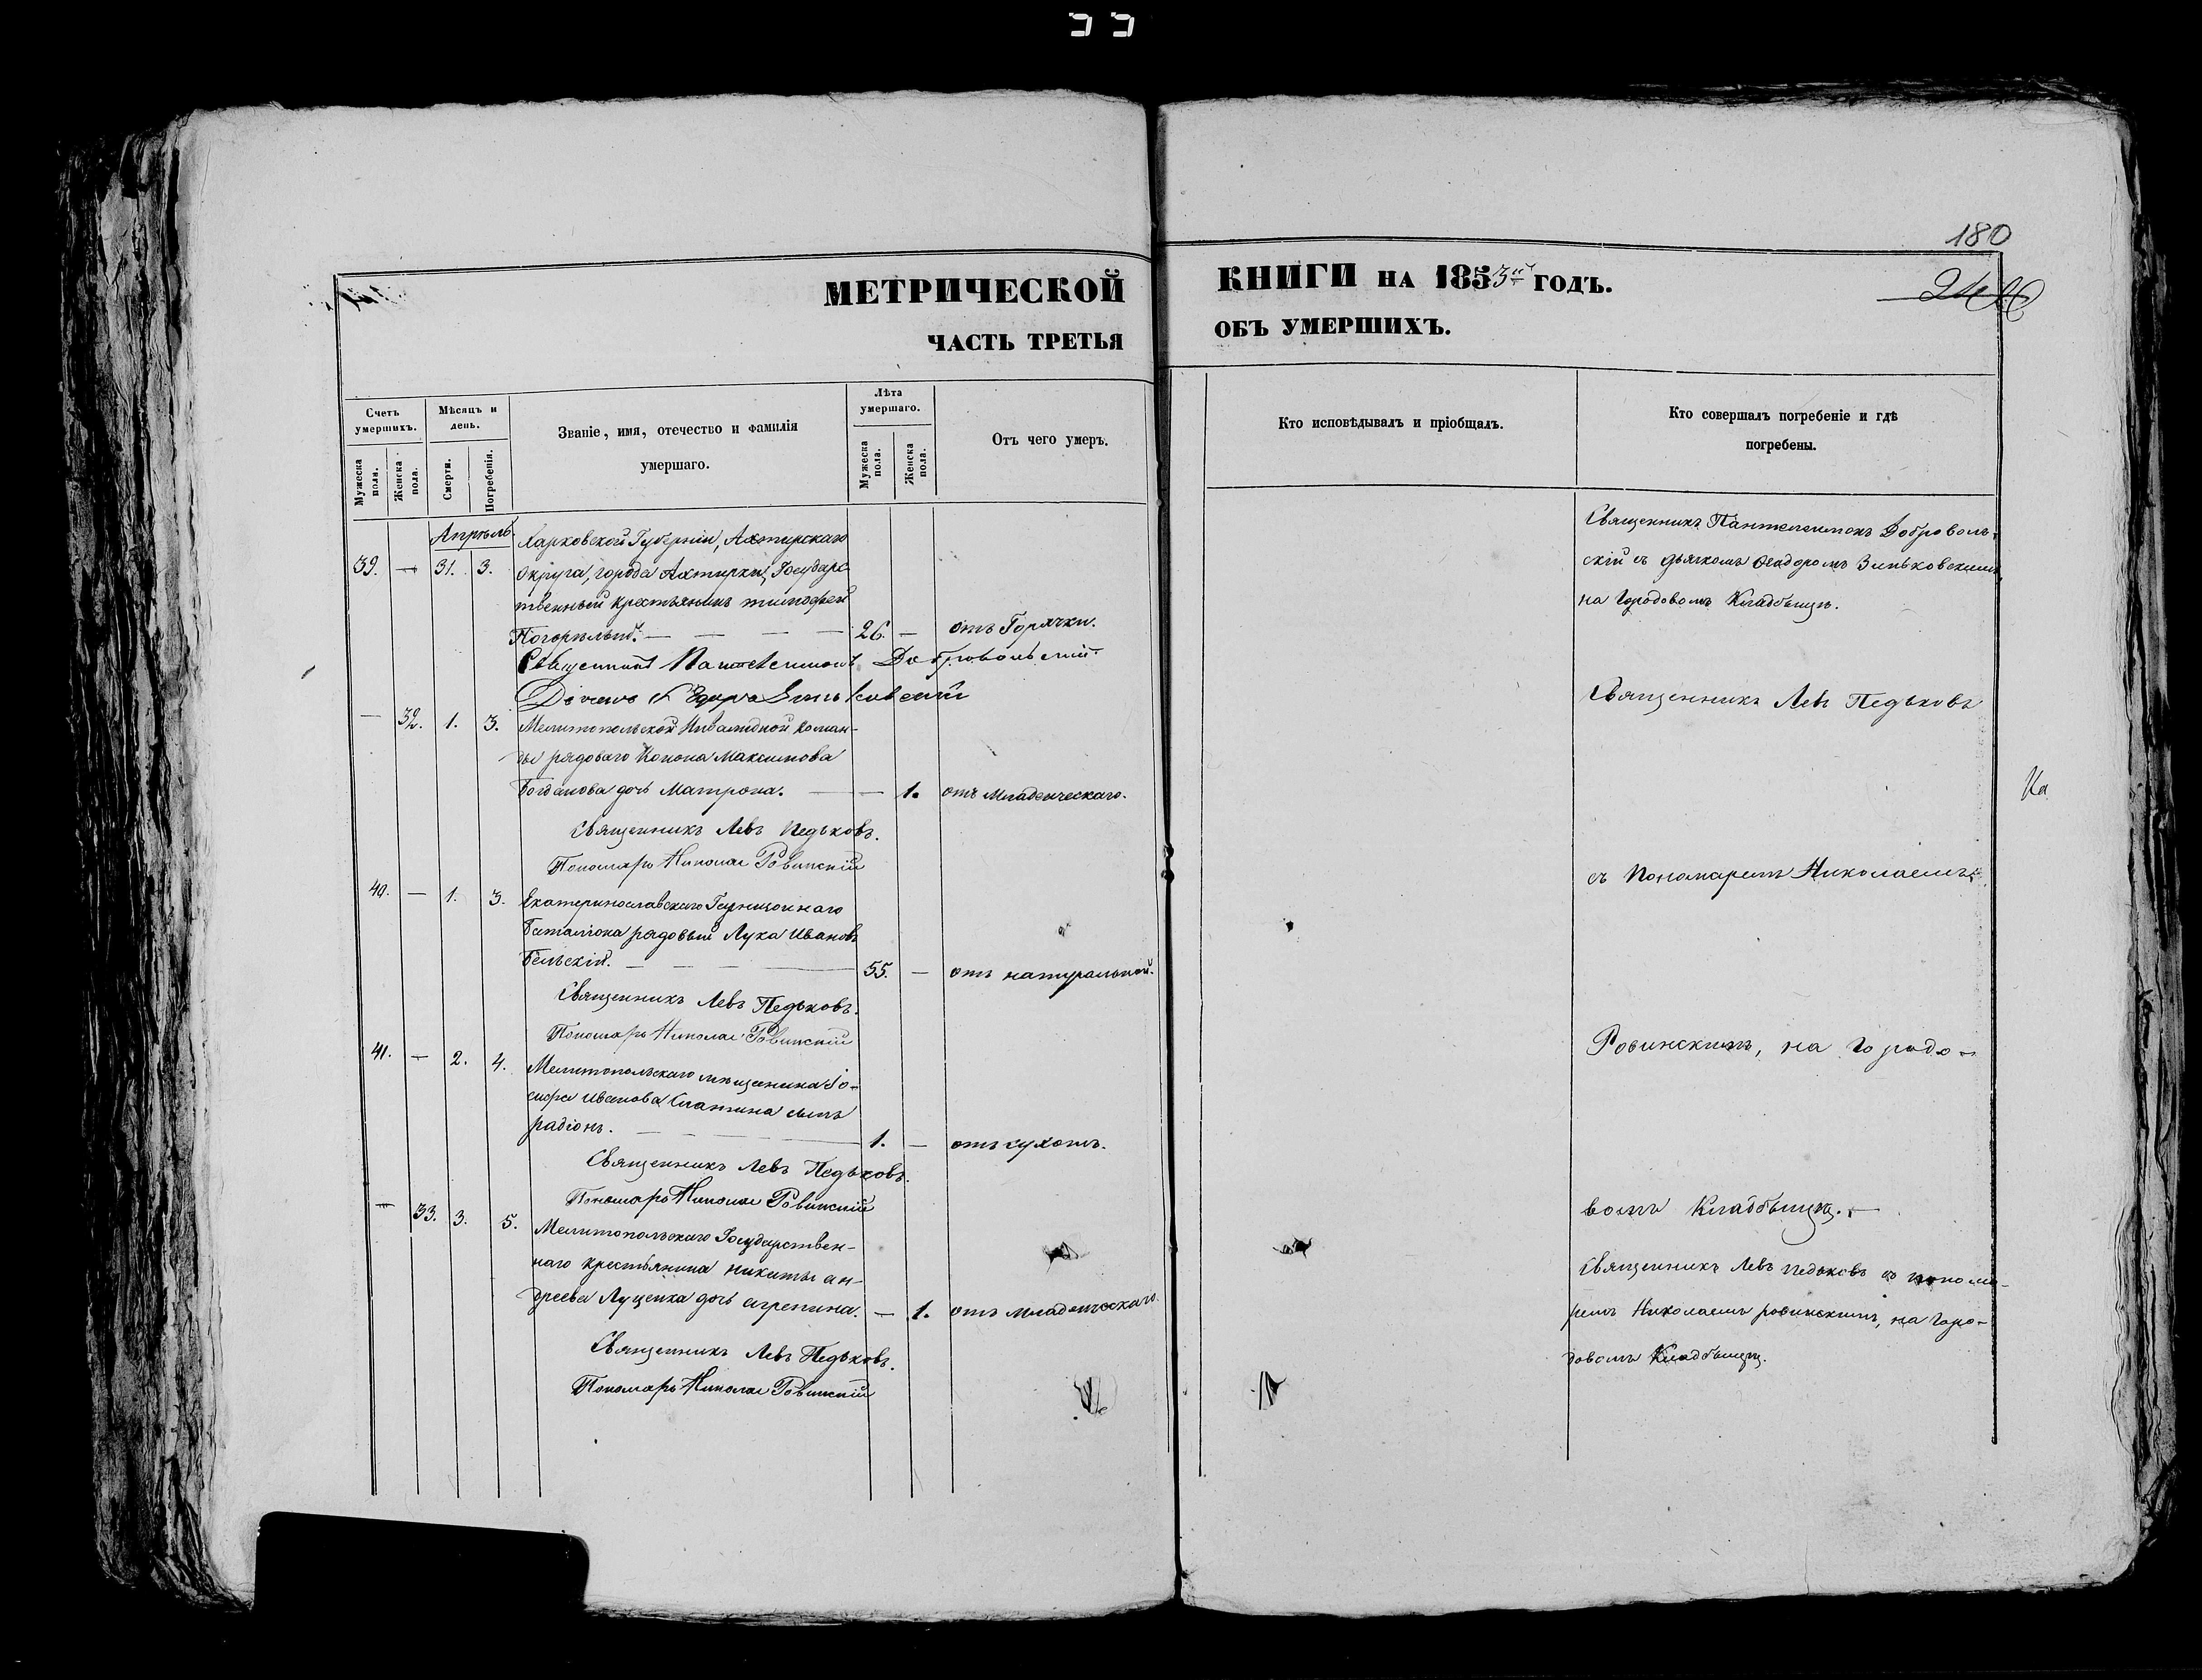 180
МЕТРИЧЕСКОЙ КНИГИ НА 1853й ГОДЪ.
ЧАСТЬ ТРЕТЬЯ ОБЪ УМЕРШИХЪ.
Счетъ умершихъ.
Мужеска пола.
Женска пола.
Мѣсяцъ и день.
Смерти.
Погребенія.
Званіе, имя, отечество и фамилія
умершаго.
Лѣта умершаго.
Мужеска пола.
Женска пола.
Отъ чего умеръ.
Кто исповѣдывалъ и пріобщалъ.
Кто совершалъ погребеніе и гдѣ
погребены.
Апрѣль.
Харковской Губерніи, Ахтирскаго
39. — 31. 3. Округа, города Ахтирки, Государс
твенный крестьянинъ тимофей
Погорѣлый. — — — — 26. — отъ Горячки.
Священникъ Пантелеимонъ Добровольскій.
Священникъ Пантелеимонъ Доброволь-
скій съ дьячкомъ Феодоромъ Зиньковскимъ,
на Городовомъ Кладбищѣ.
— 32. 1. 3. Мелитопольской Инвалидной коман-
ды рядоваго Конона Максимова
Богданова дочь Матрона. — — 1. отъ Младенческаго.
Священникъ Левъ Педьковъ.
Пономарь Николай Ровинскій
Священникъ Левъ Педьковъ
На
40. — 1. 3. Екатеринославскаго Гарнизоннаго
Баталіона рядовый Лука Ивановъ
Бельскій. — — — 55. — отъ натуральной.
Священникъ Левъ Педьковъ.
Пономарь Николай Ровинскій
съ Пономаремъ Николаемъ
41. — 2. 4. Мелитопольскаго мѣщанина Іо-
сифа Иванова сынъ
радіонъ. — — 1. — отъ сухотъ.
Священникъ Левъ Педьковъ.
Пономарь Николай Ровинскій
Ровинскимъ, на Городо-
— 33. 3. 5. Мелитопольскаго Государствен-
наго крестьянина никиты ан-
дреева Луценка дочь агрепина. — 1. отъ младенческаго
Священникъ Левъ Педьковъ.
Пономарь Николай Ровинскій
вомъ Кладбищѣ. —
Священникъ Левъ Педьковъ съ понома-
ремъ Николаемъ ровинскимъ, на Горо-
довомъ Кладбищѣ.